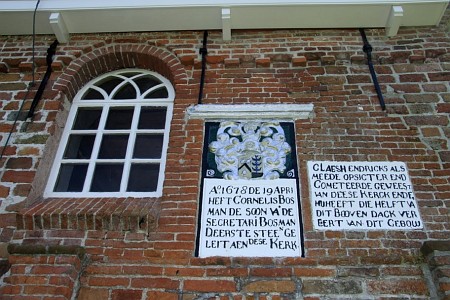 Aº. 1678 DE 19 APRI
HEFT CORNELIS BOS
MAN DE SOON VA DE
SECRETARI BOSMAN
DEERSTE STEEN GE
LEIT AEN DESE KERK
CLAES HENDRICKS ALS
MEEDE OPSICTER END
COMETEERDE GEWEEST
VAN DEESE KERCK ENDE
NU HEEFT DIE HELFT VA
DIT BOOVEN DACK VER
EERT VAN DIT GEBOU